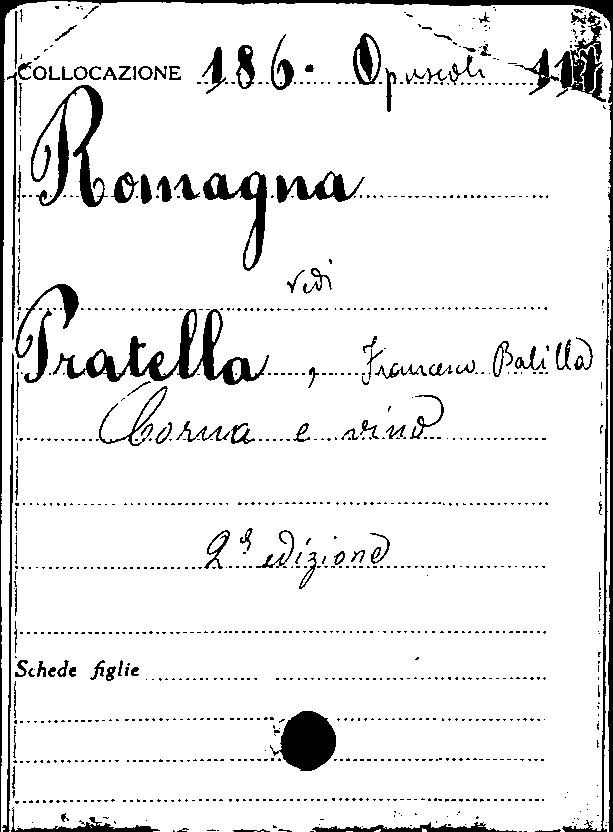 COLLOCAZIONE 186. Opuscoli
Romagna
vedi
Pratella, Francesco Balilla
e vino
2ª edizione
Schede figlie